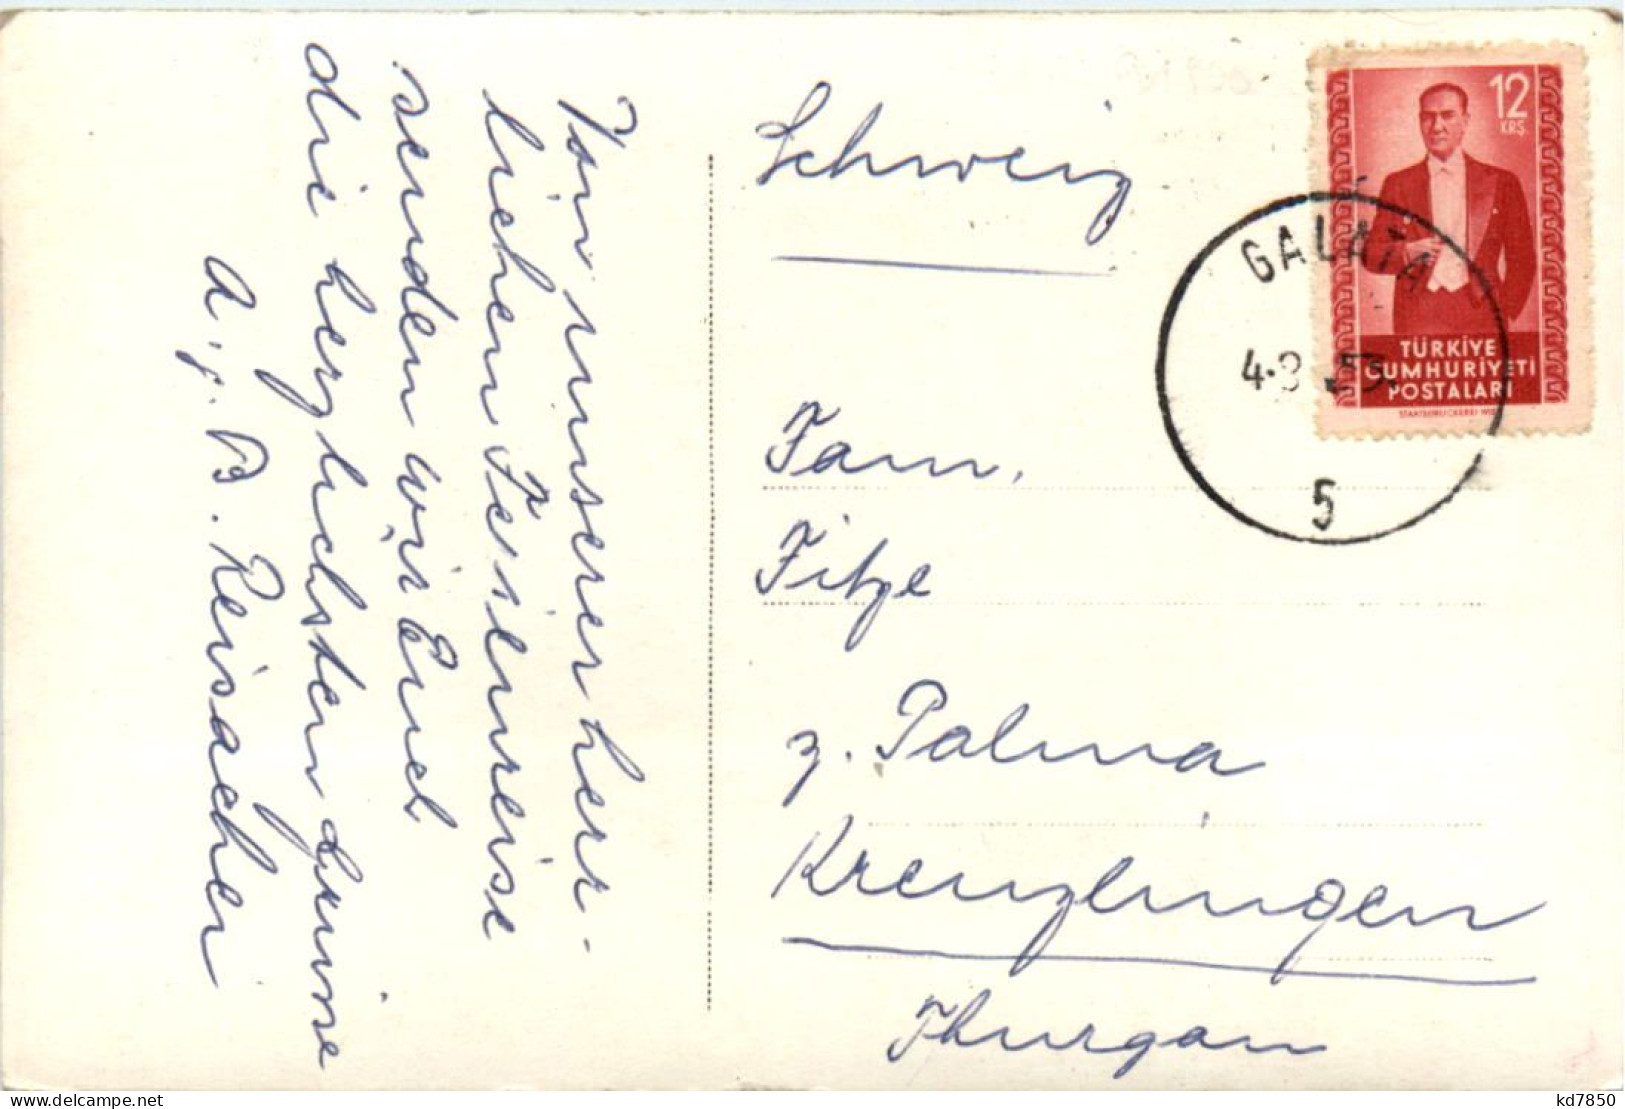 Von unserer herr-
lichen Ferienreise
senden wir Euch
die herzlichsten Grüsse
A. j. B. Reisacher
Schweiz
Fam.
Fitze
z. Palma
Kreuzlingen
Thurgau
12
KRŞ
TÜRKİYE
CUMHURİYETİ
POSTALARI
GALATA
4.8 53
5
delcampe.net
kd7850